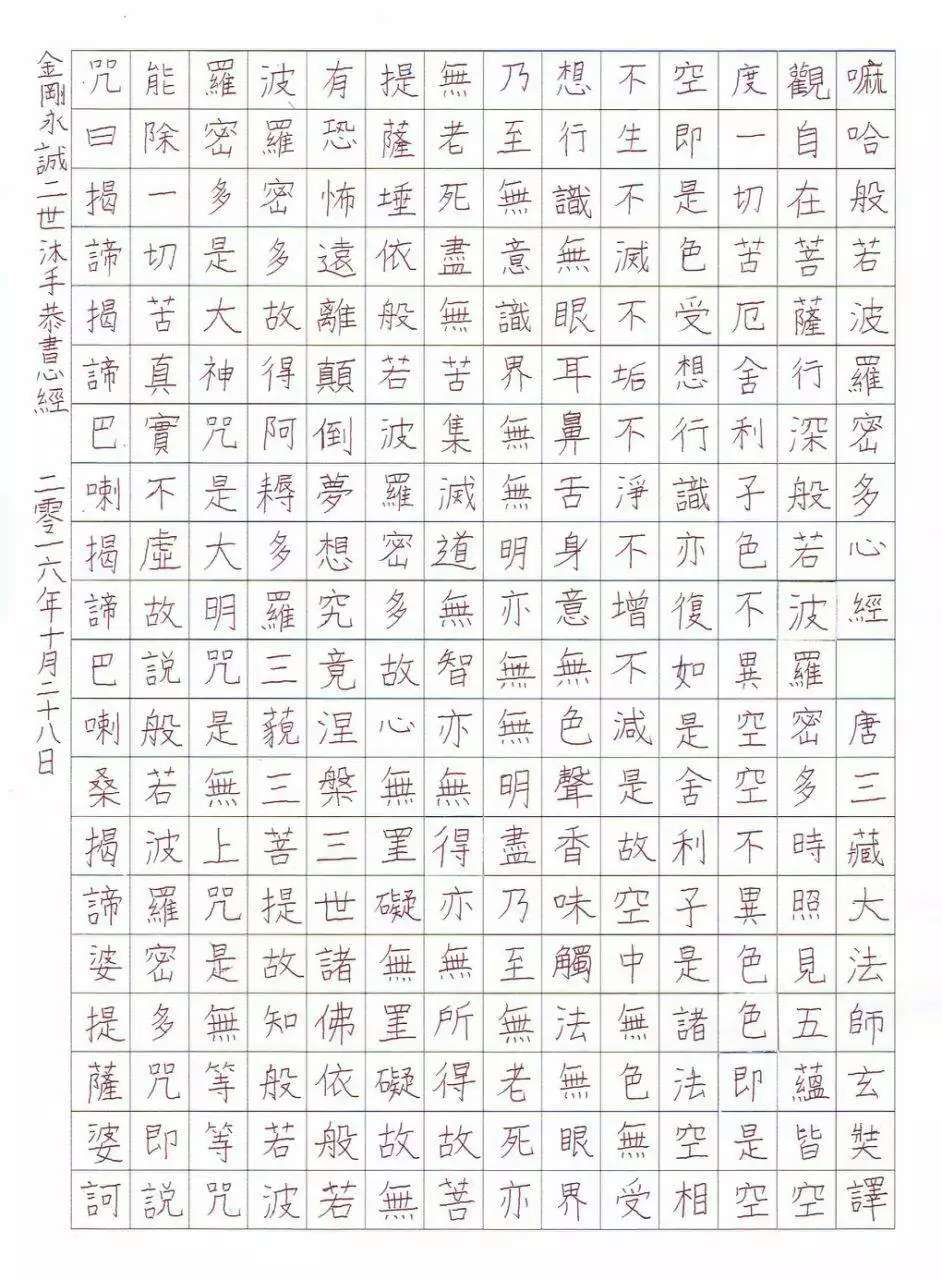 嘛哈般若波羅密多心經 唐三藏大法師玄奘譯
觀自在菩薩行深般若波羅密多時照見五蘊皆空
度一切苦厄舍利子色不異空空不異色色即是空
空即是色受想行識亦復如是舍利子是諸法空相
不生不滅不垢不淨不增不減是故空中無色無受
想行識無眼耳鼻舌身意無色聲香味觸法無眼界
乃至無意識界無無明亦無無明盡乃至無老死亦
無老死盡無苦集滅道無智亦無得亦無所得故菩
提薩埵依般若波羅密多故心無罣礙無罣礙故無
有恐怖遠離顛倒夢想究竟涅槃三世諸佛依般若
波羅密多故得阿耨多羅三藐三菩提故知般若波
羅密多是大神咒是大明咒是無上咒是無等等咒
能除一切苦真實不虛故說般若波羅密多咒即說
咒曰揭諦揭諦巴喇揭諦巴喇桑揭諦婆提薩婆訶
金剛永誠二世沐手恭書心經 二零一六年十月二十八日